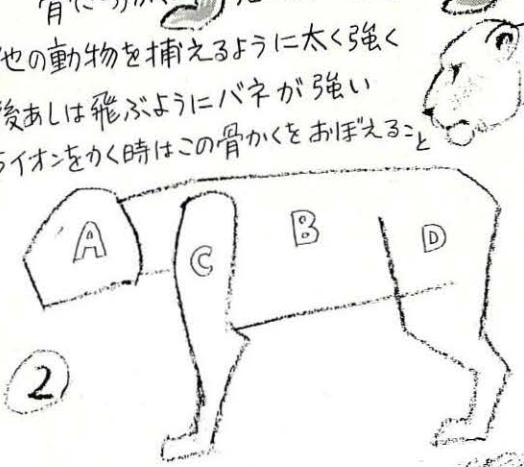 他の動物を捕えるように太く強く
後あしは飛ぶようにバネが強い
ライオンをかく時はこの骨かくをおぼえること
A
B
C
D
2